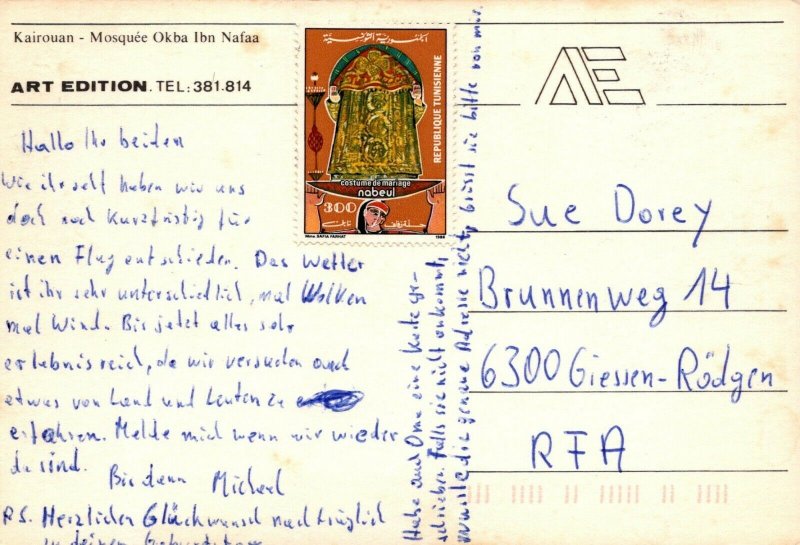 Kairouan - Mosquée Okba Ibn Nafaa
ART EDITION. TEL: 381.814
AE
الجمهورية التونسية
REPUBLIQUE TUNISIENNE
costume de mariage
nabeul
300
Mme. SAFIA FARHAT
1986
Hallo Ihr beiden
Wie ihr seht haben wir uns
doch noch kurzfristig für
einen Flug entschieden. Das Wetter
ist ihr sehr unterschiedlich, mal Wolken
mal Wind. Bis jetzt alles sehr
erlebnisreich, da wir versuchen auch
etwas von Land und Leuten zu
erfahren. Melde mich wenn wir wieder
da sind.
Bis dann Michael
P.S. Herzlichen Glückwunsch nachträglich
zu deinem Geburtstag
Habe auch Oma eine Karte ge-
schrieben. Falls sie nicht ankommt,
wusste die genaue Adresse nicht, grüsst sie bitte von mir.
Sue Dorey
Brunnenweg 14
6300 Giessen-Rödgen
RFA